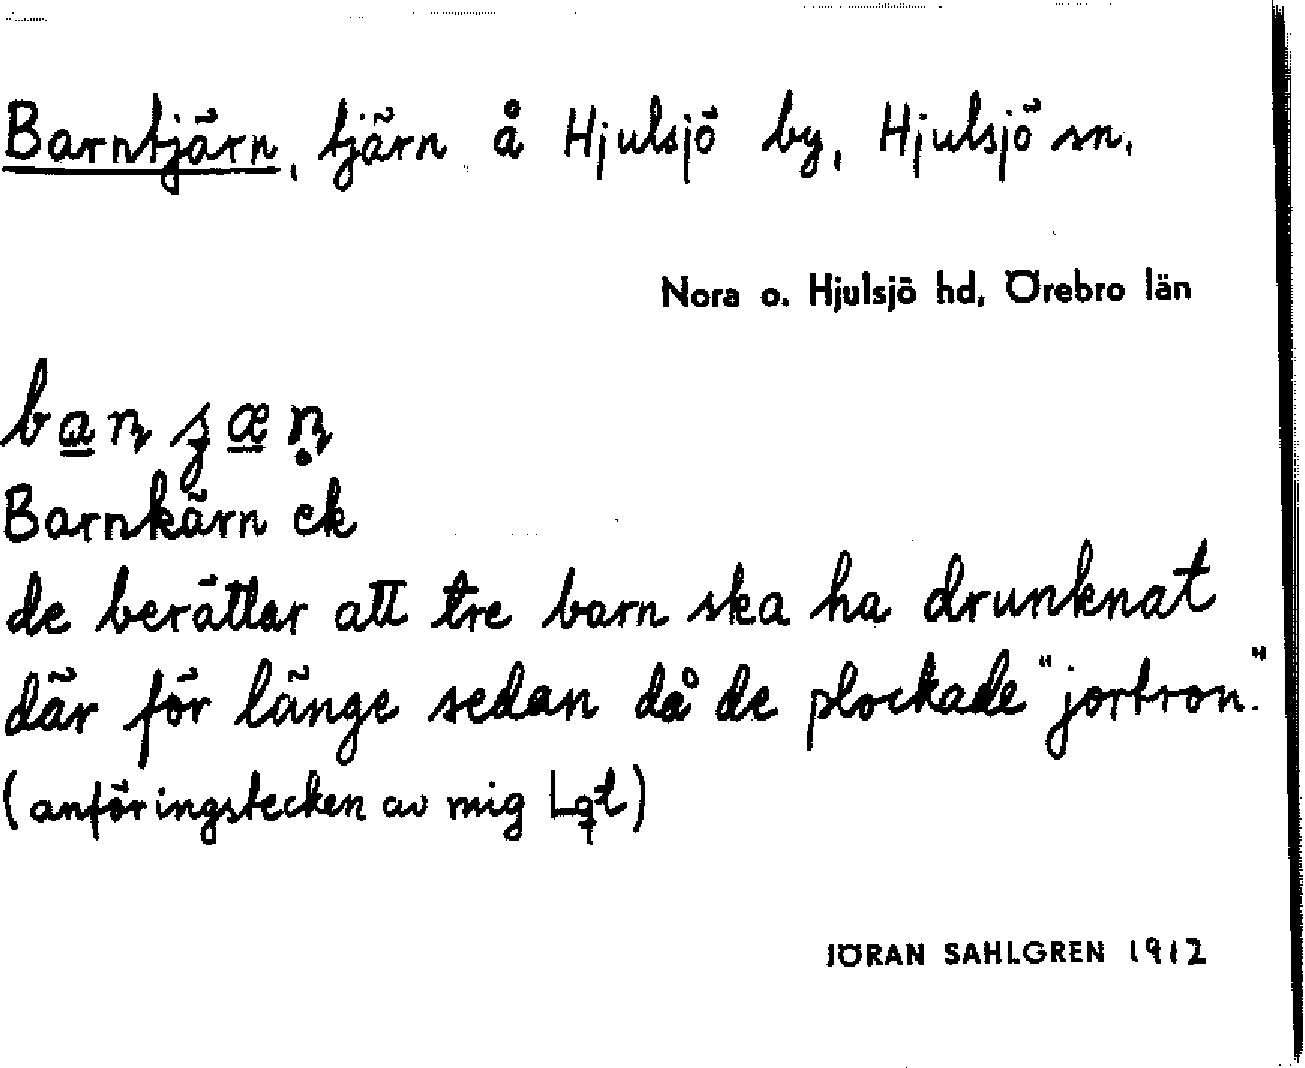 Barntjärn, tjärn å Hjulsjö by, Hjulsjö sn.
Nora o. Hjulsjö hd, Örebro län
Barnkärn ek
de berättar att tre barn ska ha drunknat
där för länge sedan då de plockade "jortron."
(anföringstecken av mig Lqt)
JÖRAN SAHLGREN 1912